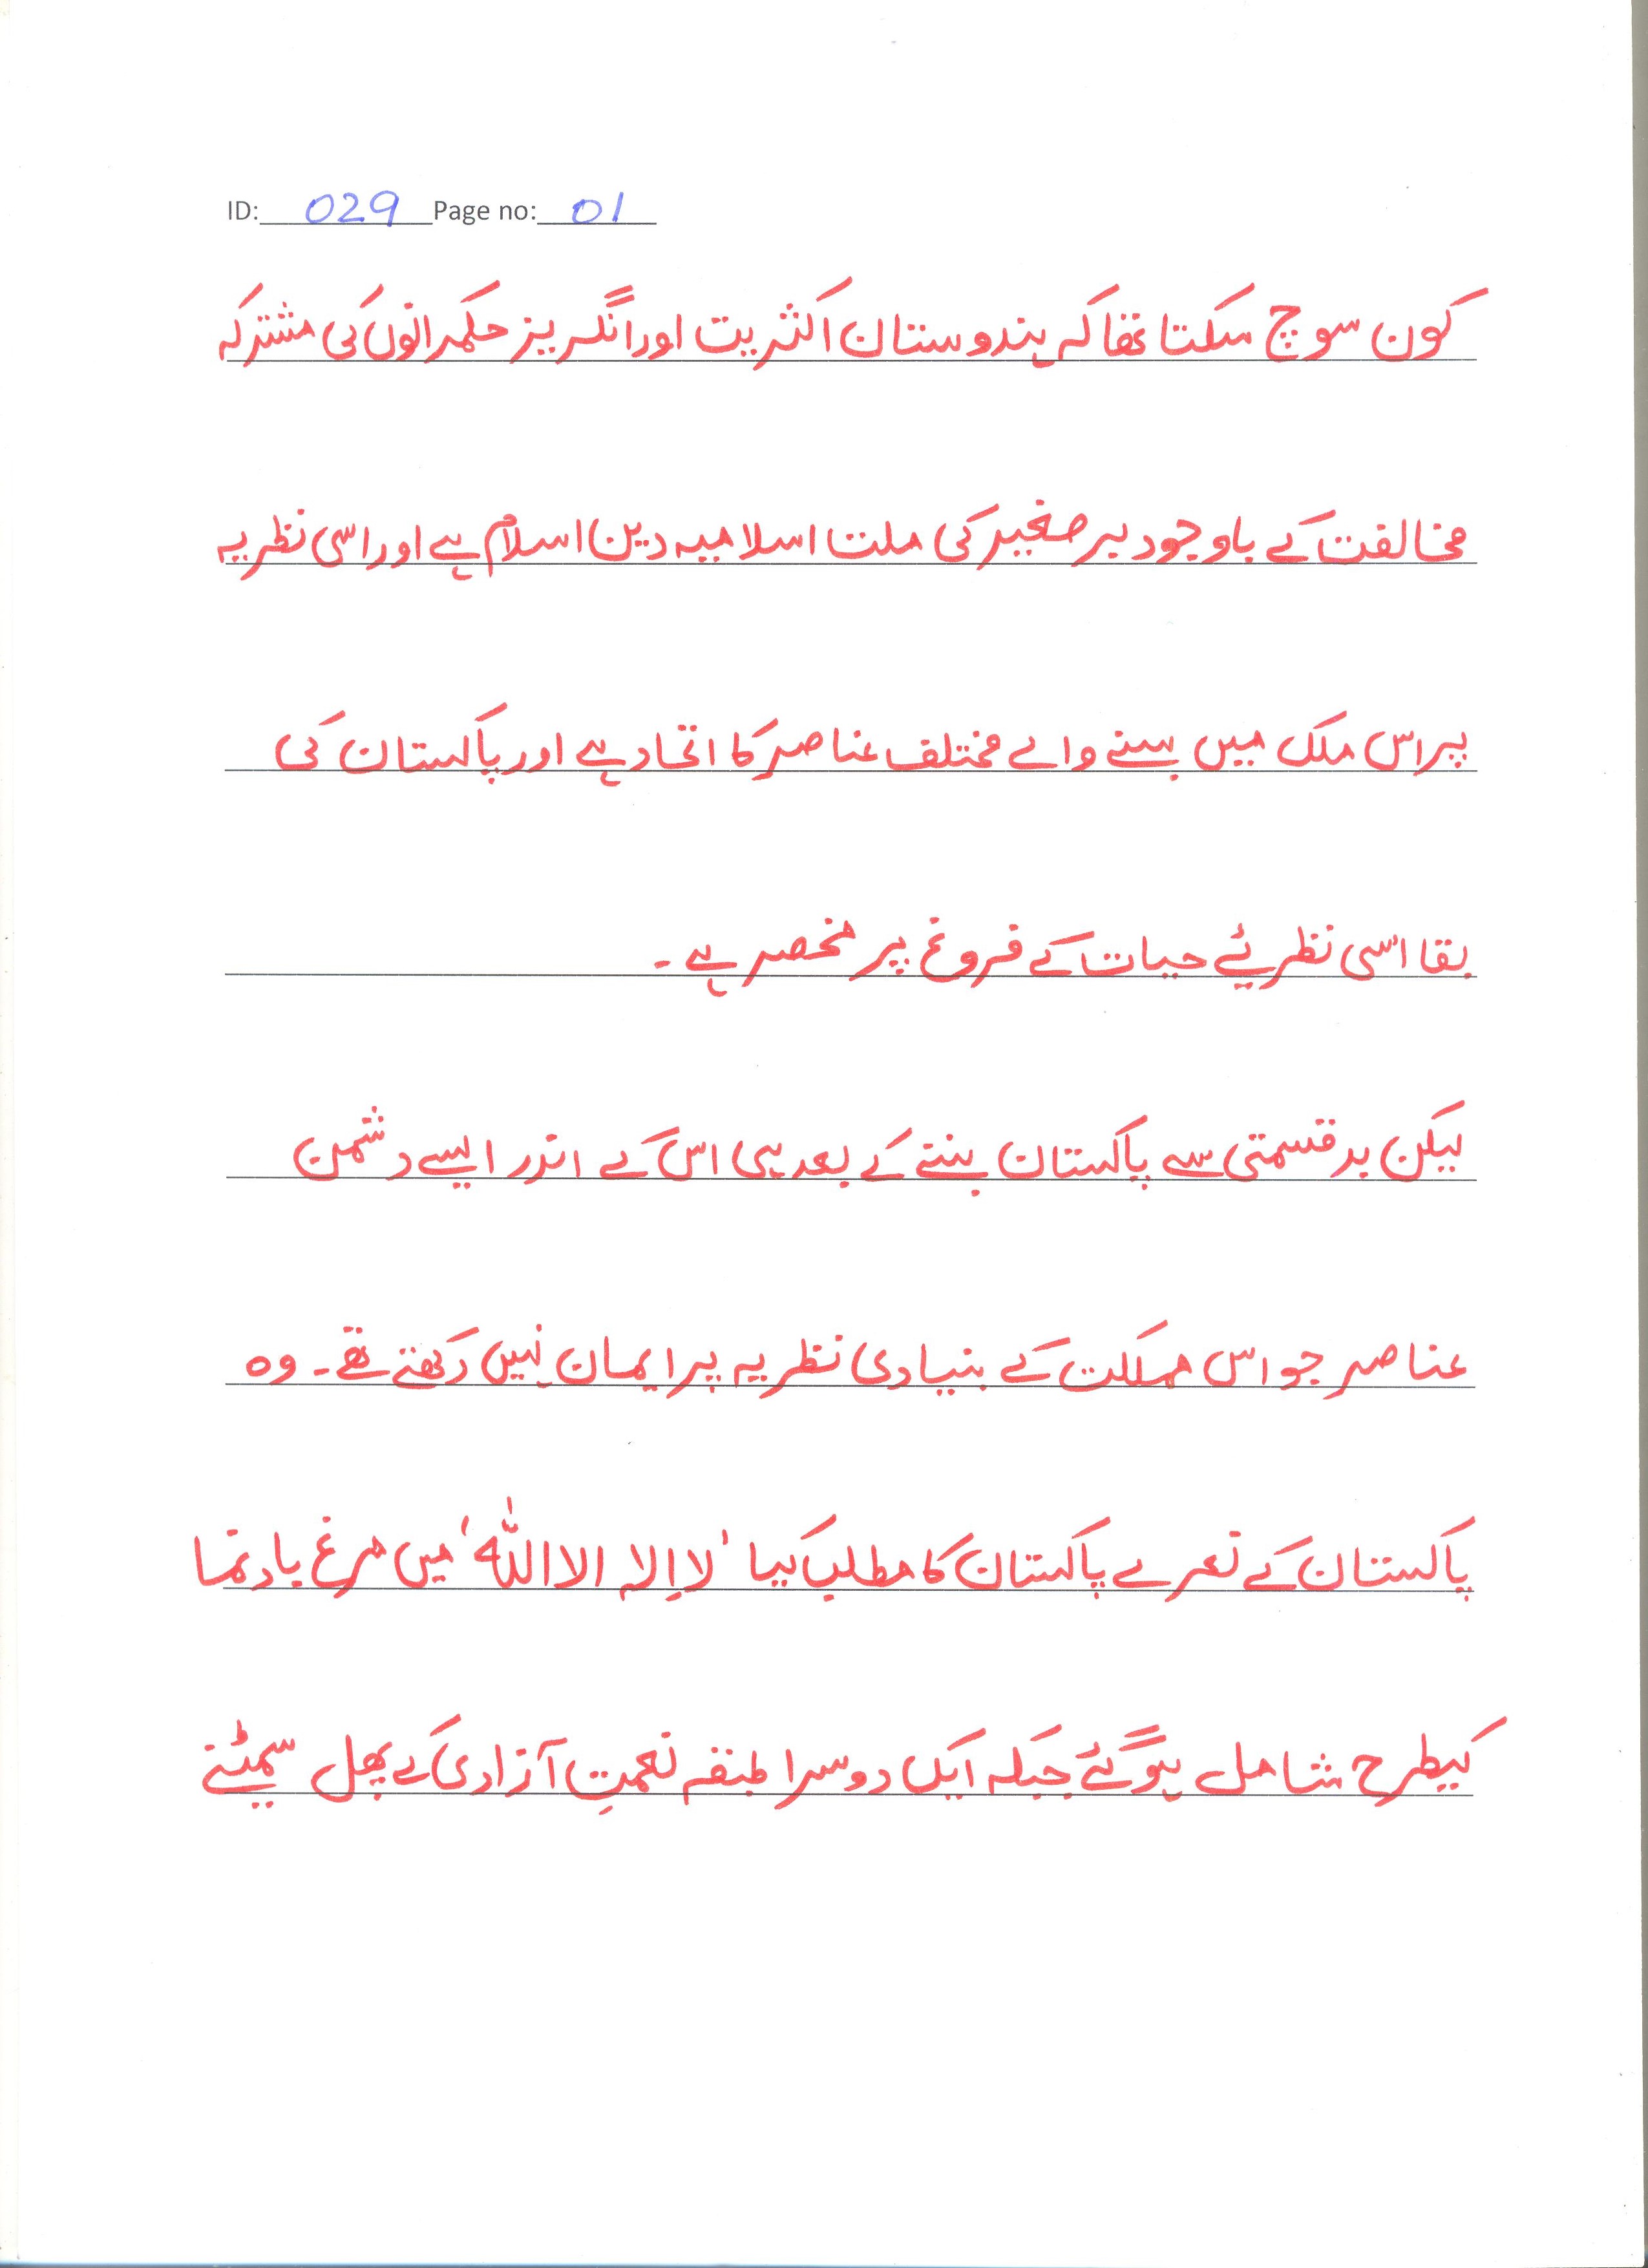 ID: 029 Page no: 01
کون سوچ سکتا تھا کہ ہندوستان اکثریت اور انگریز حکمرانوں کی مشترکہ
مخالفت کے باوجود برصغیر کی ملت اسلامیہ دین اسلام ہے اور اسی نظریہ
پر اس ملک میں بسنے والے مختلف عناصر کا اتحاد ہے اور پاکستان کی
بقا اسی نظریئے حیات کے فروغ پر منحصر ہے۔
لیکن بدقسمتی سے پاکستان بننے کے بعد ہی اس کے اندر ایسے دشمن
عناصر جو اس مملکت کے بنیادی نظریہ پر ایمان نہیں رکھتے تھے۔ وہ
پاکستان کے نعرے پاکستان کا مطلب کیا 'لا اِلہ الا اللہ' میں مرغ بادنما
کیطرح شامل ہوگئے جبکہ ایک دوسرا طبقہ نعمتِ آزادی کے پھل سمیٹنے